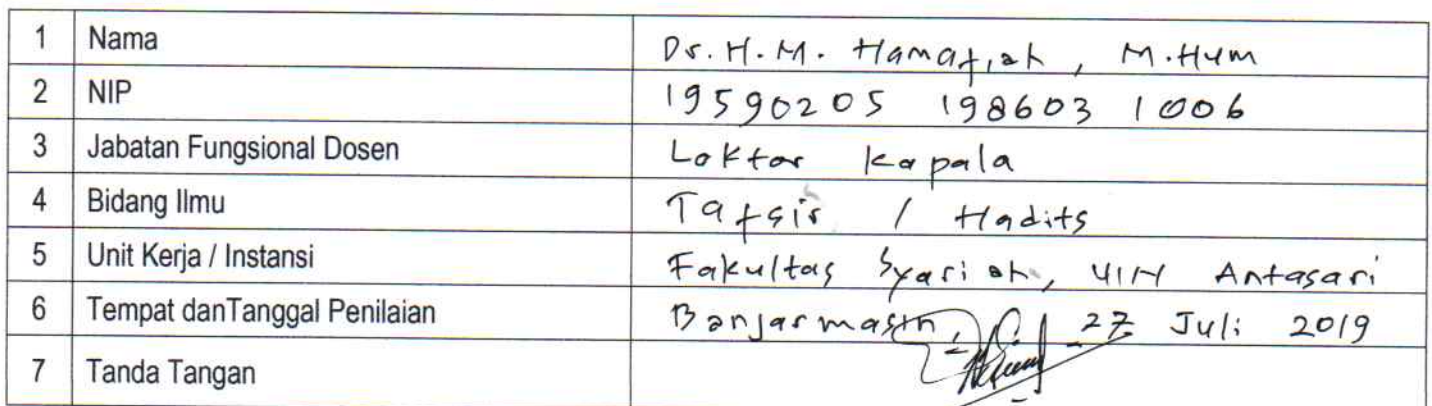 1 Nama Dr. H. M. Hanafiah, M.Hum
2 NIP 19590205 198603 1006
3 Jabatan Fungsional Dosen Lektor Kepala
4 Bidang Ilmu Tafsir / Hadits
5 Unit Kerja / Instansi Fakultas Syariah, UIN Antasari
6 Tempat danTanggal Penilaian Banjarmasin, 27 Juli 2019
7 Tanda Tangan